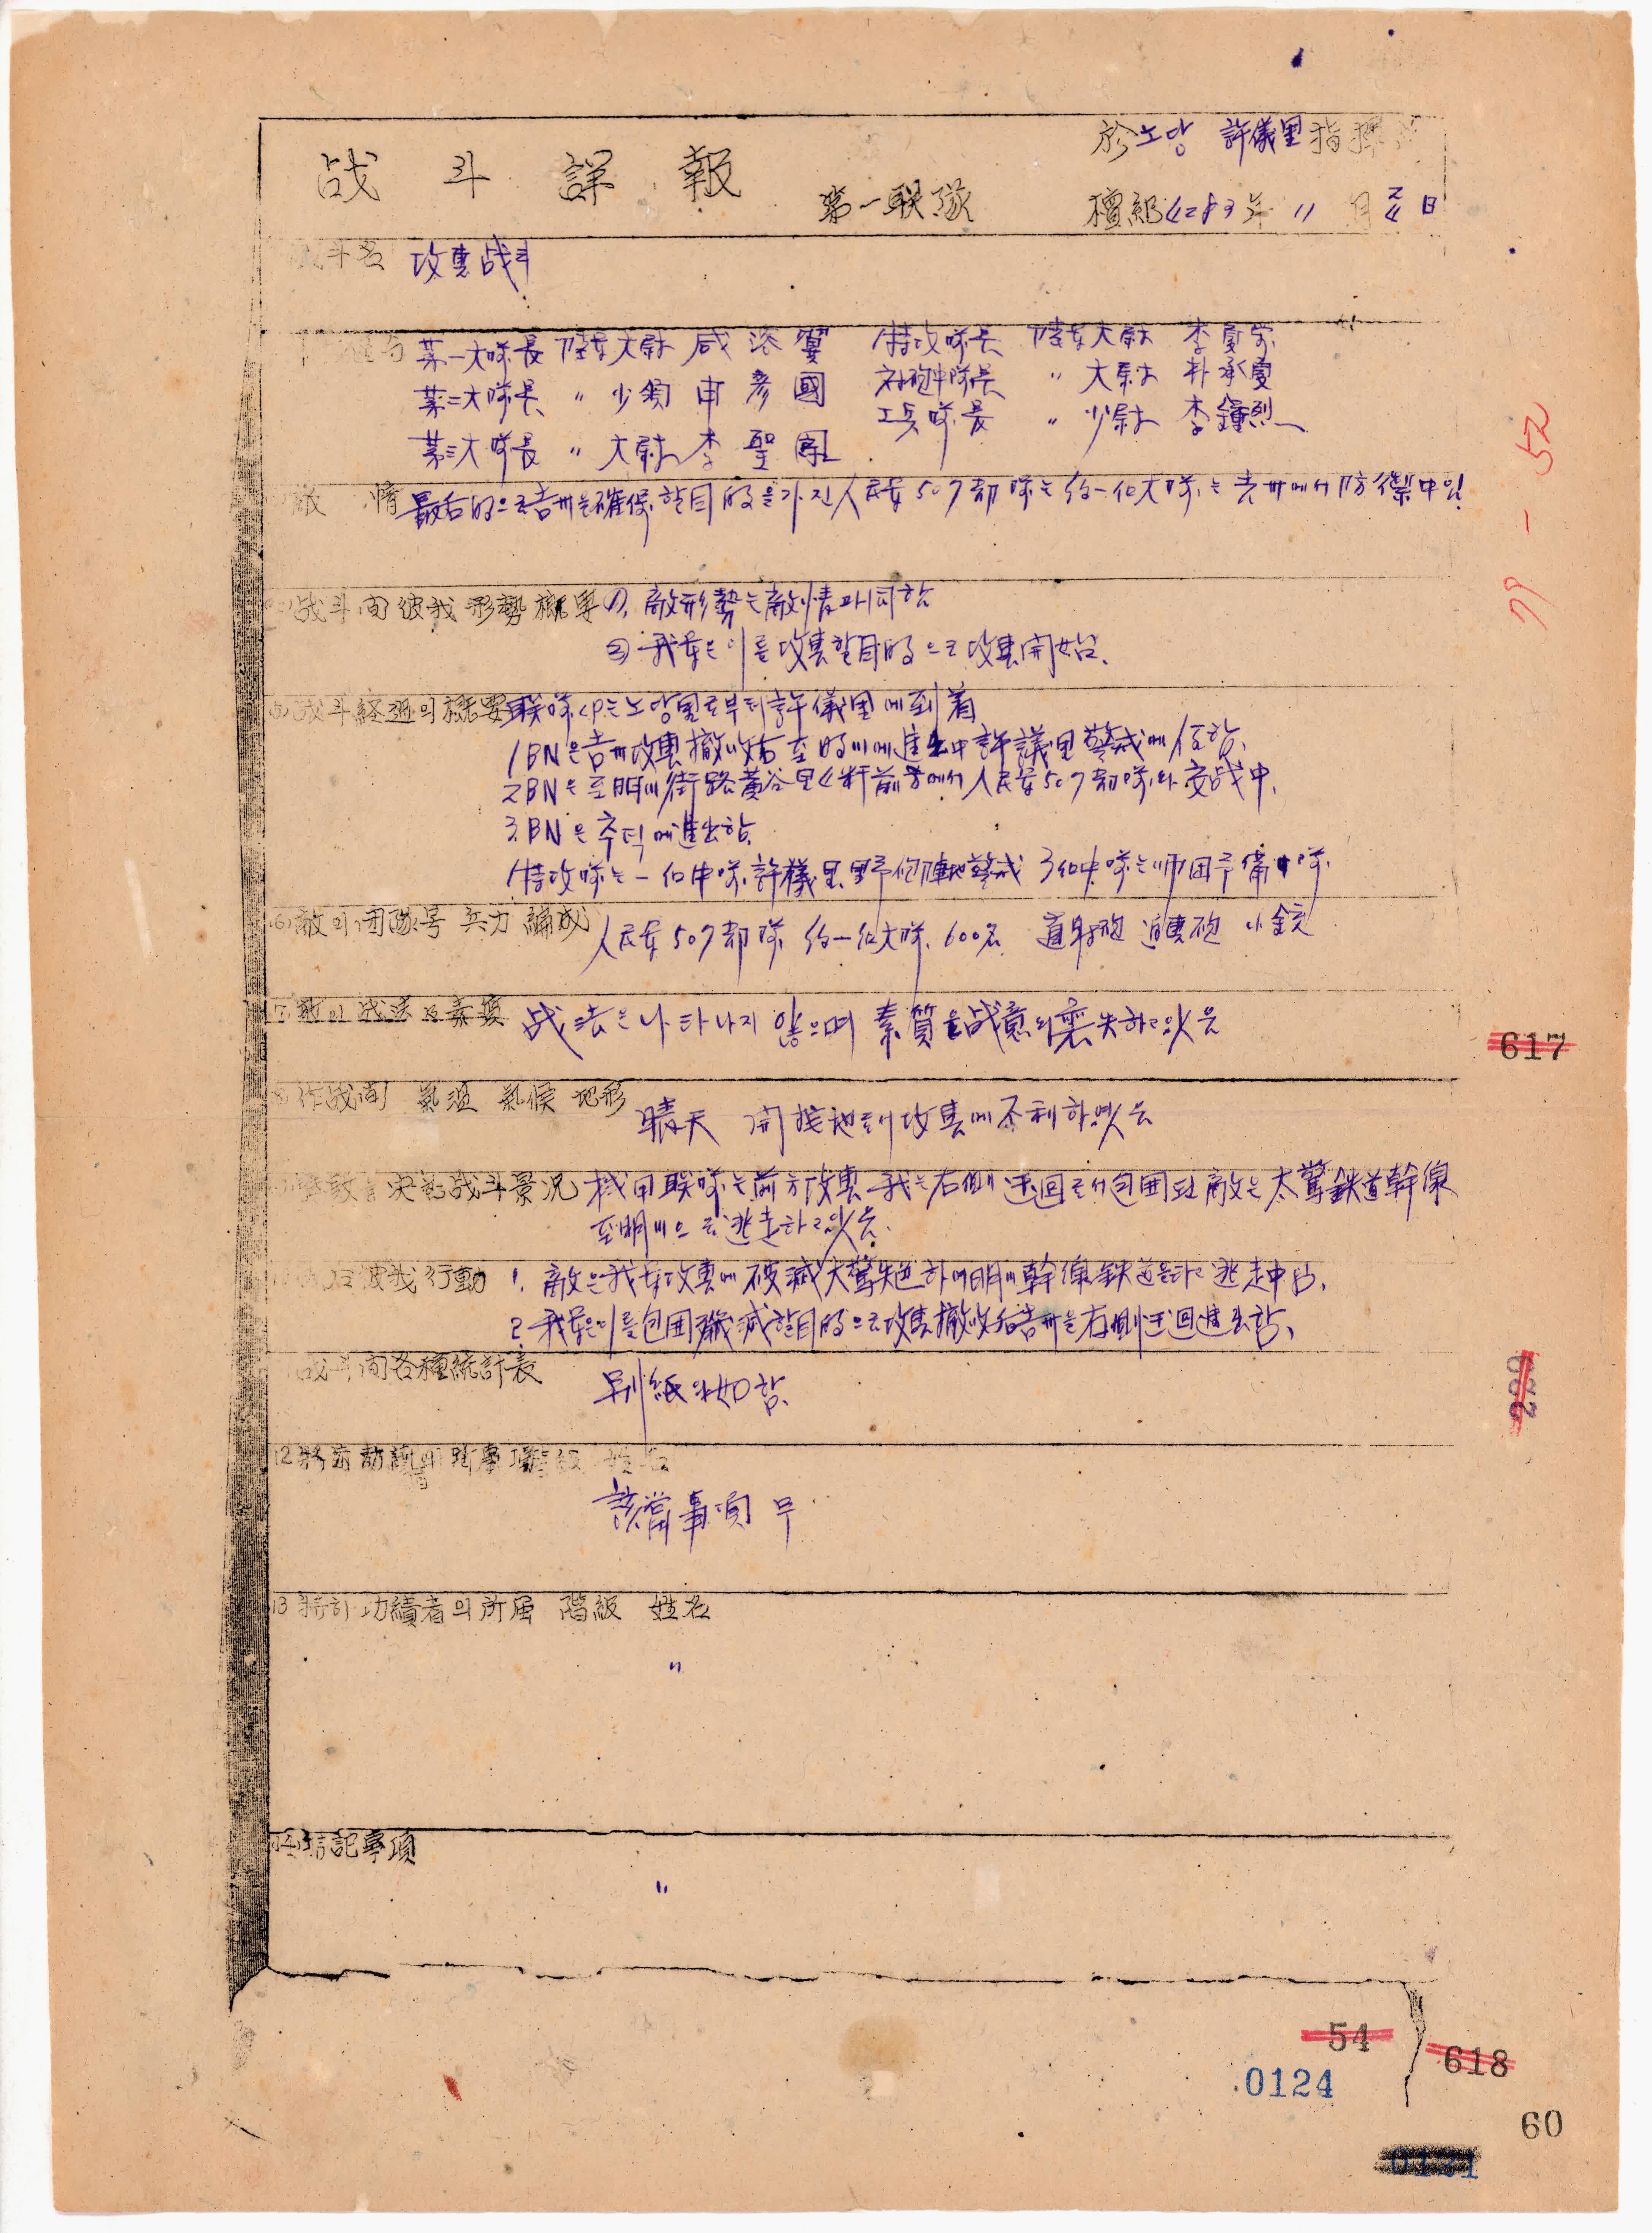 於노앙 許儀里指揮
战斗詳報
第一联隊
檀紀4283年 11月24日
斗名 攻擊战斗
第一大隊長 陸軍大尉 咸 特攻隊長 陸軍大尉 李
第二大隊長 〃 少領 申彦國 砲中隊長 〃 大尉 朴承夏
第三大隊長 〃 大尉 李聖 工兵隊長 〃 少尉 李鐘烈
情 最后的으로 吉州를 確保할 目的을 가진 人民军 507部隊는 約一個大隊는 吉州에서 防禦中임
战斗间 彼我 形勢 概要 (1) 敵形勢는 敵情과 同함
(2) 我军은 이를 攻擊할 目的으로 攻擊 開始함.
(5) 战斗経過의 概要 联隊 CP는 노앙里로부터 許儀里에 到着
1BN은 吉州 攻擊 撤收 后 至 明川에 進出中 許議里 警戒에 任함.
2BN은 至 明川 街路 黃谷里 4粁 前方에서 人民军 507部隊와 交战中.
3.BN은 추덕에 進出함
特攻隊는 一個中隊 許儀里 野砲陣地 警戒 3個中隊는 师团予備中隊.
(6) 敵의 团隊号 兵力 編成 人民军 507部隊 約一個大隊. 600名 直射砲 迫擊砲 小銃
敵의 战法 及 素質 战法은 나타나지 않으며 素質은 战意의 喪失하고 있음
作战间 氣温 氣候 地形 晴天 開 地로서 攻擊에 不利하였음
决 战斗景况 機甲联隊는 前方 攻擊 我는 右側 迂回로서 包囲 敵은 大驚 鉄道幹線
至 明川으로 逃走하고 있음.
后 彼我 行動 1. 敵은 我军 攻擊에 破滅 大驚失色하여 明川 幹線 鉄道 逃走中임.
2. 我军은 이를 包囲 殲滅할 目的으로 攻擊 撤收 后 吉州를 右側 迂回 進出함.
战斗间 各種統計表 別紙와 如함.
12 所属 階級 姓名
該當事項 무
13 特히 功績者의 所属 階級 姓名
〃
(14) 特記事項
〃
79-52
617
622
54
618
0124
60
0131